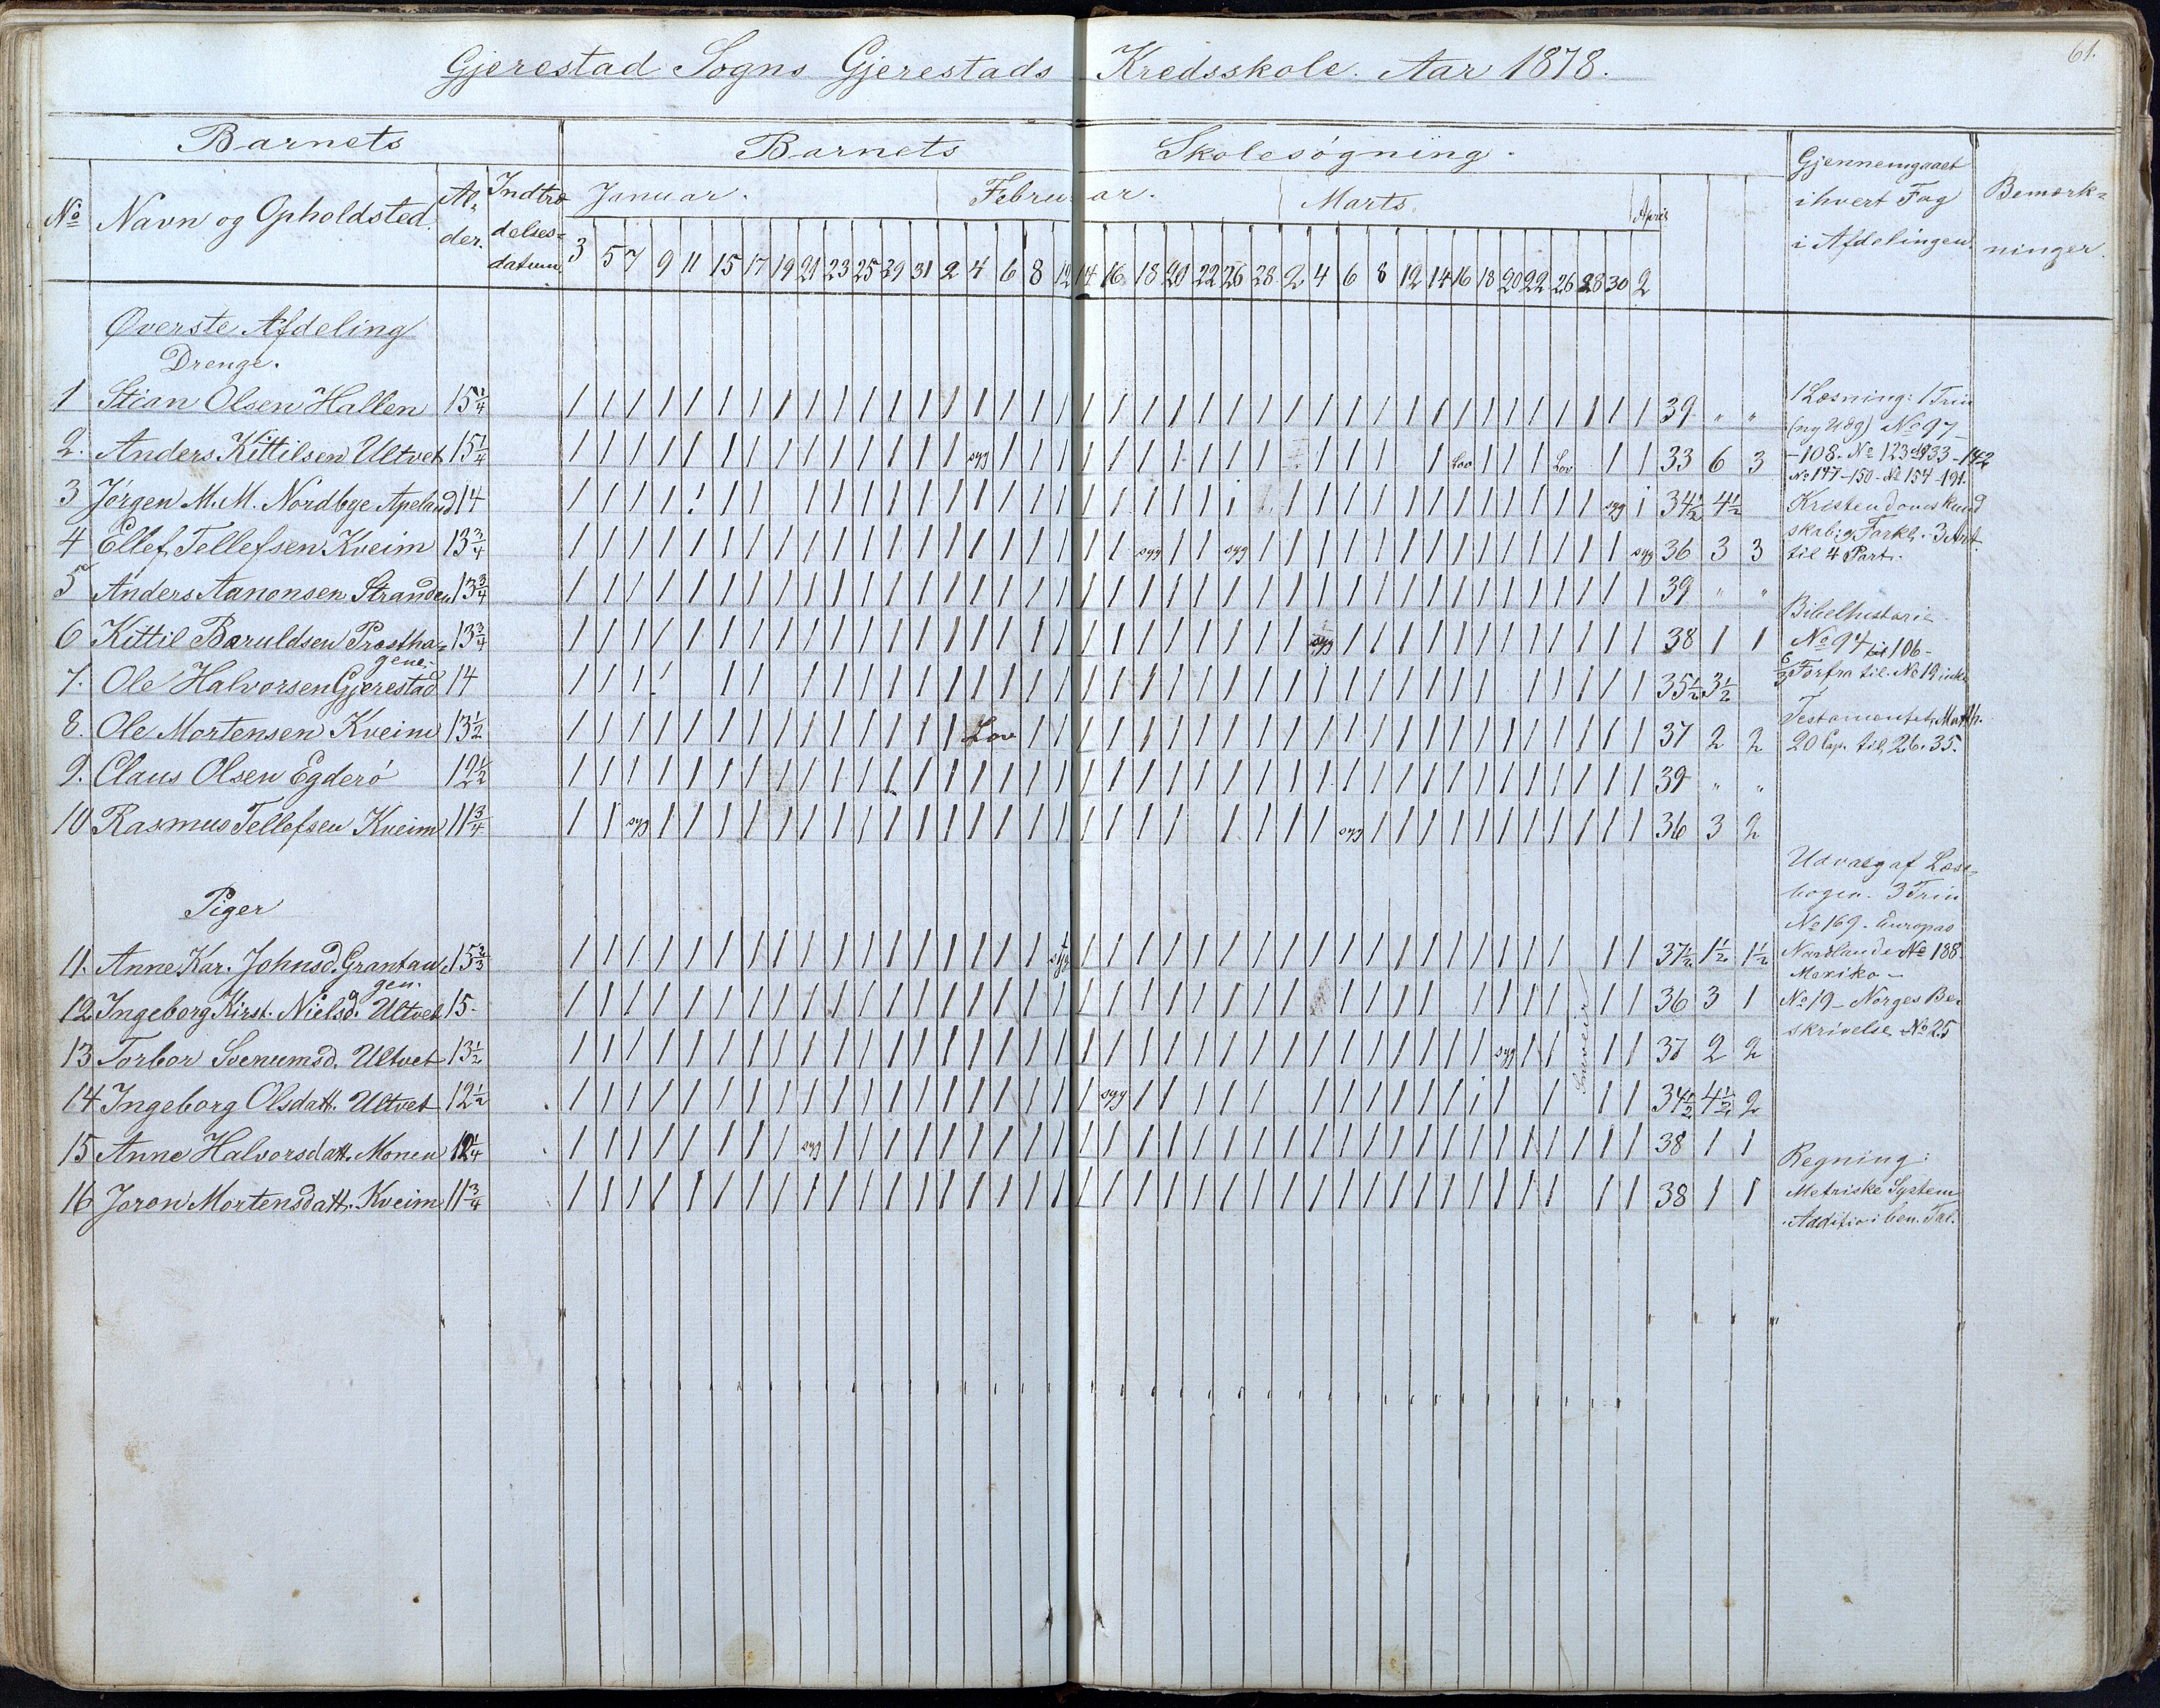 61.
Gjerestad Sogns Gjerestads Kredsskole. Aar 1878.
Barnets Barnets Skolesøgning.
No Navn og Opholdsted. Al-der. Indtræ-delses-datum. Januar. Februar. Marts. April Gjennemgaaet ihvert Fag i Afdelingen Bemærk-ninger.
3 5 7 9 11 15 17 19 21 23 25 29 31 2 4 6 8 12 14 16 18 20 22 26 28 2 4 6 8 12 14 16 18 20 22 26 28 30 2
Øverste Afdeling
Drenge.
1 Stian Olsen Hallen 15 1/4 39 " "
2. Anders Kittilsen Ultvet 15 1/4 syg Lov Lov 33 6 3
3 Jørgen M. M. Nordbye Apeland 14 syg 34 1/2 4 1/2
4 Ellef Tellefsen Kveim 13 3/4 syg syg syg 36 3 3
5 Anders Aanonsen Stranden 13 3/4 39 " "
6 Kittil Baruldsen Prestha-gene. 13 3/4 syg 38 1 1
7. Ole Halvorsen Gjerestad 14 35 1/2 3 1/2
8. Ole Mortensen Kveim 13 1/2 Lov 37 2 2
9. Claus Olsen Egderø 12 1/2 39 " "
10 Rasmus Tellefsen Kveim 11 3/4 syg syg 36 3 2
Piger
11. Anne Kar. Johnsd. Grantangen. 15 2/3 syg 37 1/2 1 1/2 1 1/2
12 Ingeborg Kirst. Nielsd. Ultvet 15. 36 3 1
13 Torbor Svenumsd. Ultvet 13 1/2 syg 37 2 2
14 Ingeborg Olsdatt. Ultvet 12 1/2 syg 34 1/2 4 1/2 2
15 Anne Halvorsdatt. Monen 12 1/4 syg 38 1 1
16 Joron Mortensdatt. Kveim 11 3/4 38 1 1
Sneveir
1 Læsning: 1 Trin
(ny Udg) No 97
-108. No 123 133-142
No 147-150- No 154-191.
Kristendomskund
skab: Forkl. 3 Art.
til 4 Part.
Bibelhistorie
No 94 til 106-
6/3 Forfra til No 19 inkl.
Testamentet, Matth.
20 Cap. til 26. 35.
Udvalg af Læse-
bogen. 3 Trin
No 169. Europas
Nordlande No 188.
Mexiko-
No 19- Norges Be-
skrivelse No 25
Regning:
Metriske System
Addition i ben. Tal.